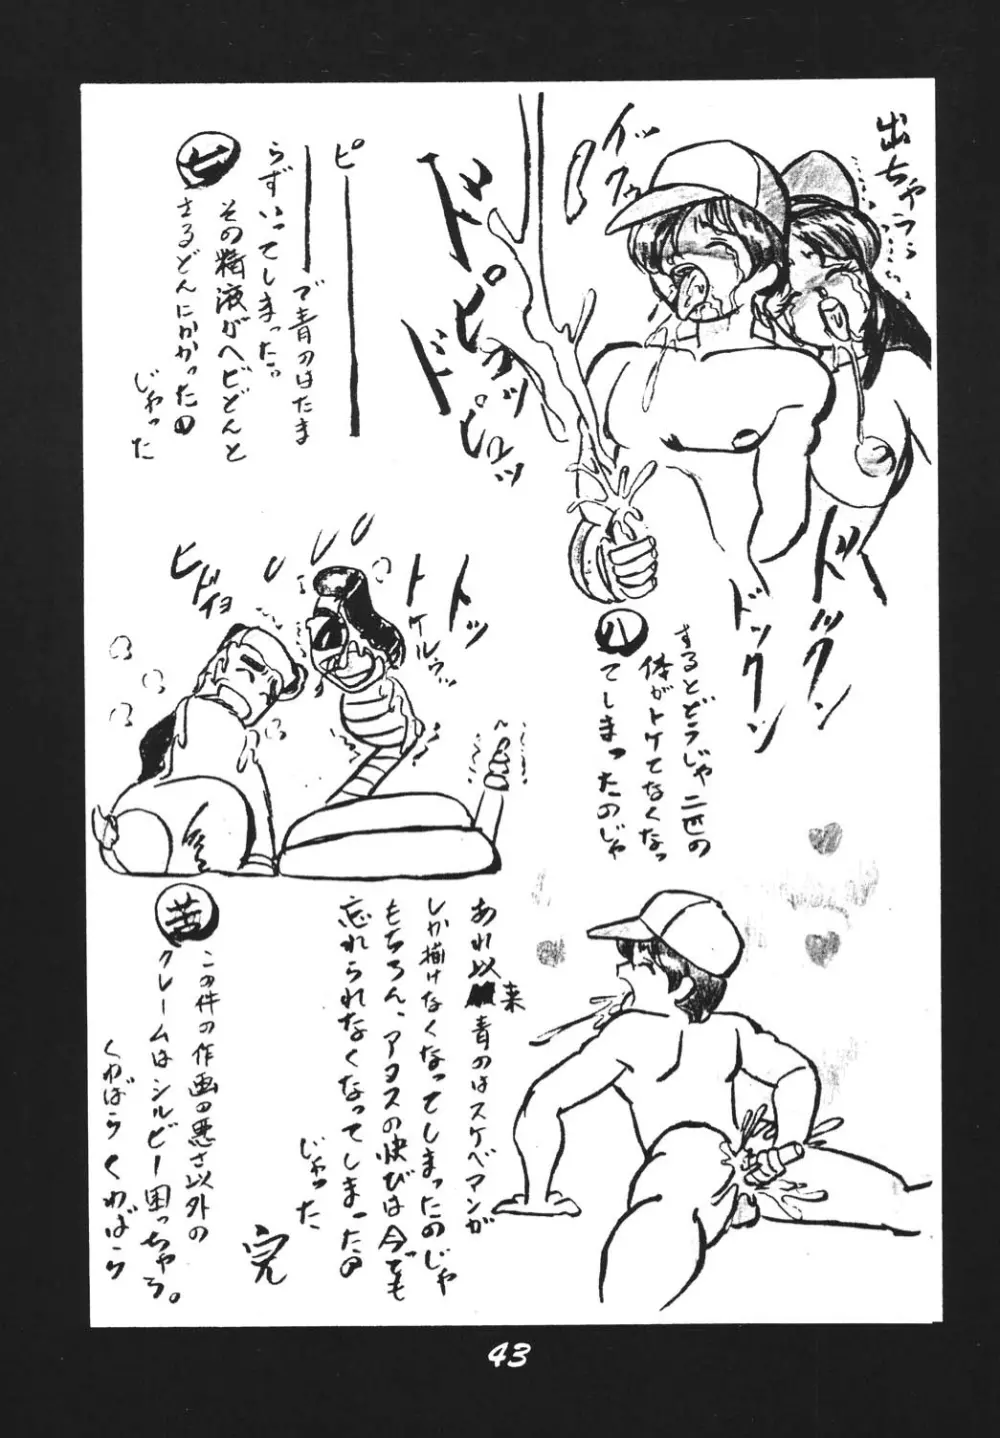 出ちゃう
イック
ウッ
ドドピュッ
ピュッ
ドックン
ドックン
ピー
で青のはたま
らずいってしまった。
七
その精液がヘビどんと
さるどんにかかったの
じゃった
八
するとどうじゃ二匹の
体がトケてなくなっ
てしまったのじゃ
トトッ
トケルウッ
ヒドイヨ
あれ以来青のはスケベマンガ
しか描けなくなってしまったのじゃ
もちろん、アヌスの快びは今でも
忘れられなくなってしまったの
じゃった
完
苦
この件の作画の悪さ以外の
クレームはシルビー困っちゃう。
くわばらくわばら
43